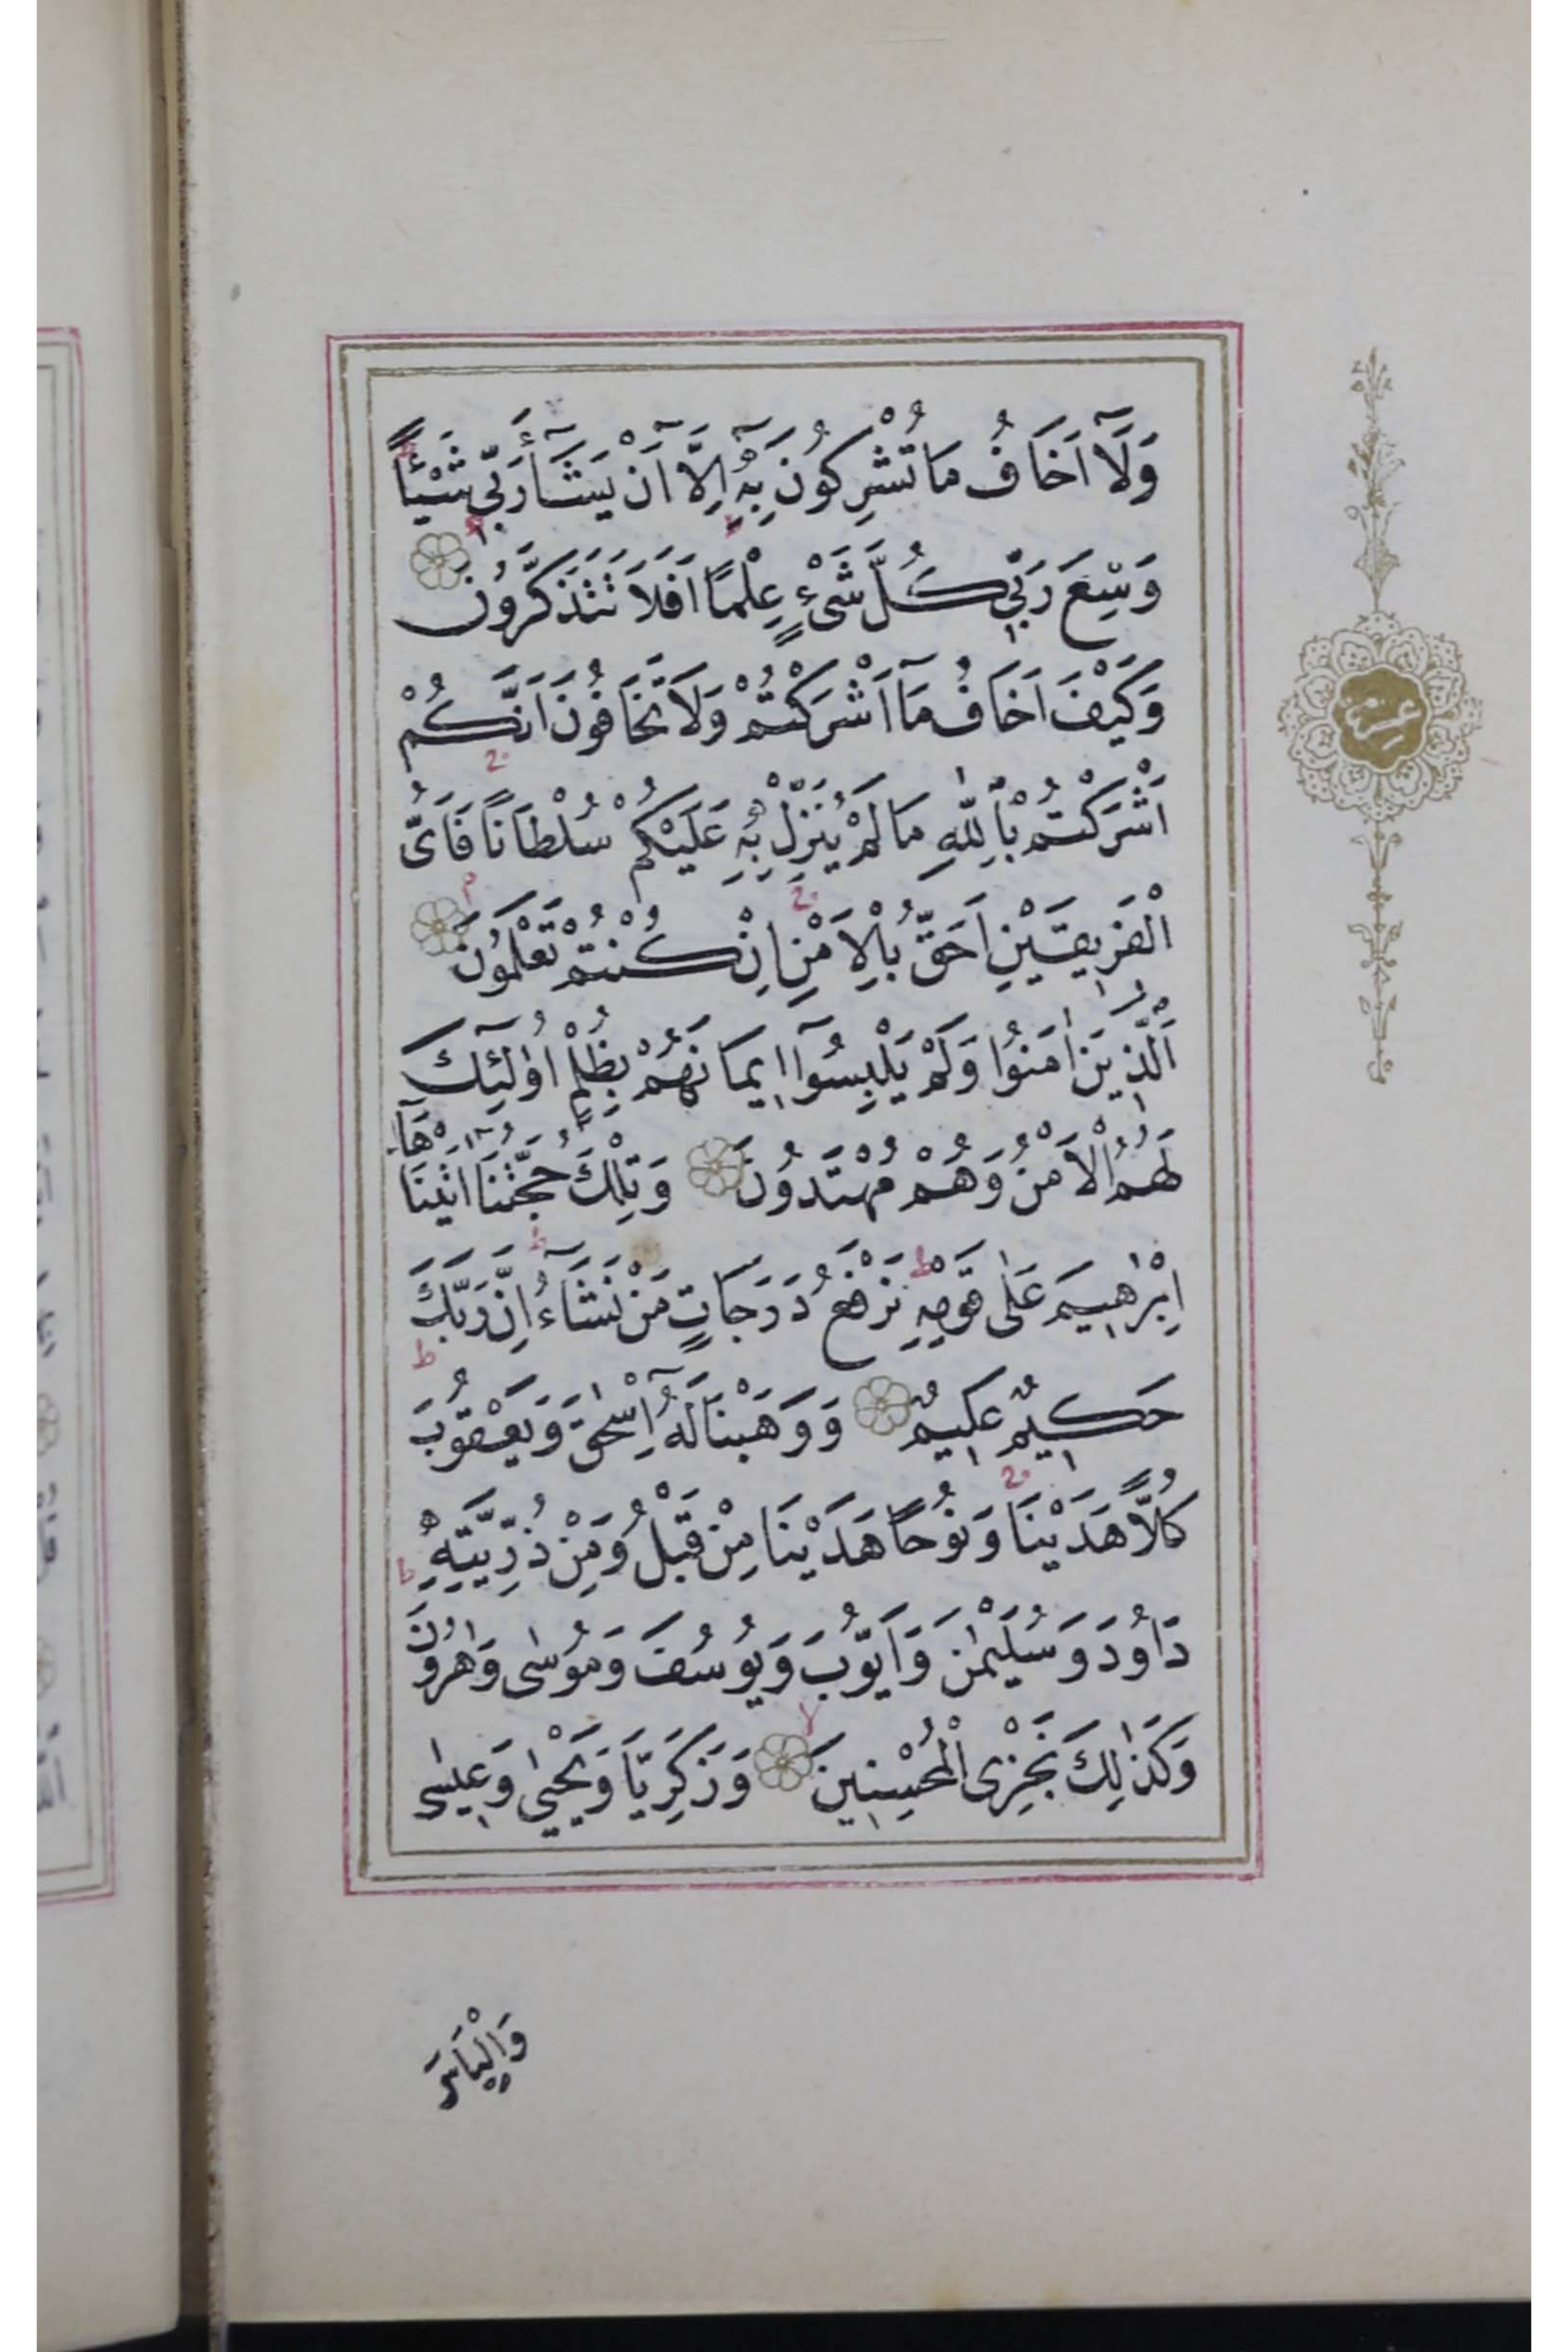 وَلَآ اَخَافُ مَا تُشْرِكُونَ بِهٖٓ اِلَّآ اَنْ يَشَآءَ رَبّٖى شَيْئًا
وَسِعَ رَبّٖى كُلَّ شَىْءٍ عِلْمًا اَفَلَا تَتَذَكَّرُونَ
وَكَيْفَ اَخَافُ مَآ اَشْرَكْتُمْ وَلَا تَخَافُونَ اَنَّكُمْ
اَشْرَكْتُمْ بِاللّٰهِ مَا لَمْ يُنَزِّلْ بِهٖ عَلَيْكُمْ سُلْطَانًا فَاَىُّ
الْفَرٖيقَيْنِ اَحَقُّ بِالْاَمْنِ اِنْ كُنْتُمْ تَعْلَمُونَ
اَلَّذٖينَ اٰمَنُوا وَلَمْ يَلْبِسُوٓا اٖيمَانَهُمْ بِظُلْمٍ اُولٰٓئِكَ
لَهُمُ الْاَمْنُ وَهُمْ مُهْتَدُونَ وَتِلْكَ حُجَّتُنَٓا اٰتَيْنَاهَآ
اِبْرٰهٖيمَ عَلٰى قَوْمِهٖ نَرْفَعُ دَرَجَاتٍ مَنْ نَشَآءُ اِنَّ رَبَّكَ
حَكٖيمٌ عَلٖيمٌ وَوَهَبْنَا لَهُٓ اِسْحٰقَ وَيَعْقُوبَ
كُلًّا هَدَيْنَا وَنُوحًا هَدَيْنَا مِنْ قَبْلُ وَمِنْ ذُرِّيَّتِهٖ
دَاوُدَ وَسُلَيْمٰنَ وَاَيُّوبَ وَيُوسُفَ وَمُوسٰى وَهٰرُونَ
وَكَذٰلِكَ نَجْزِى الْمُحْسِنٖينَ وَزَكَرِيَّا وَيَحْيٰى وَعٖيسٰى
وَاِلْيَاسَ